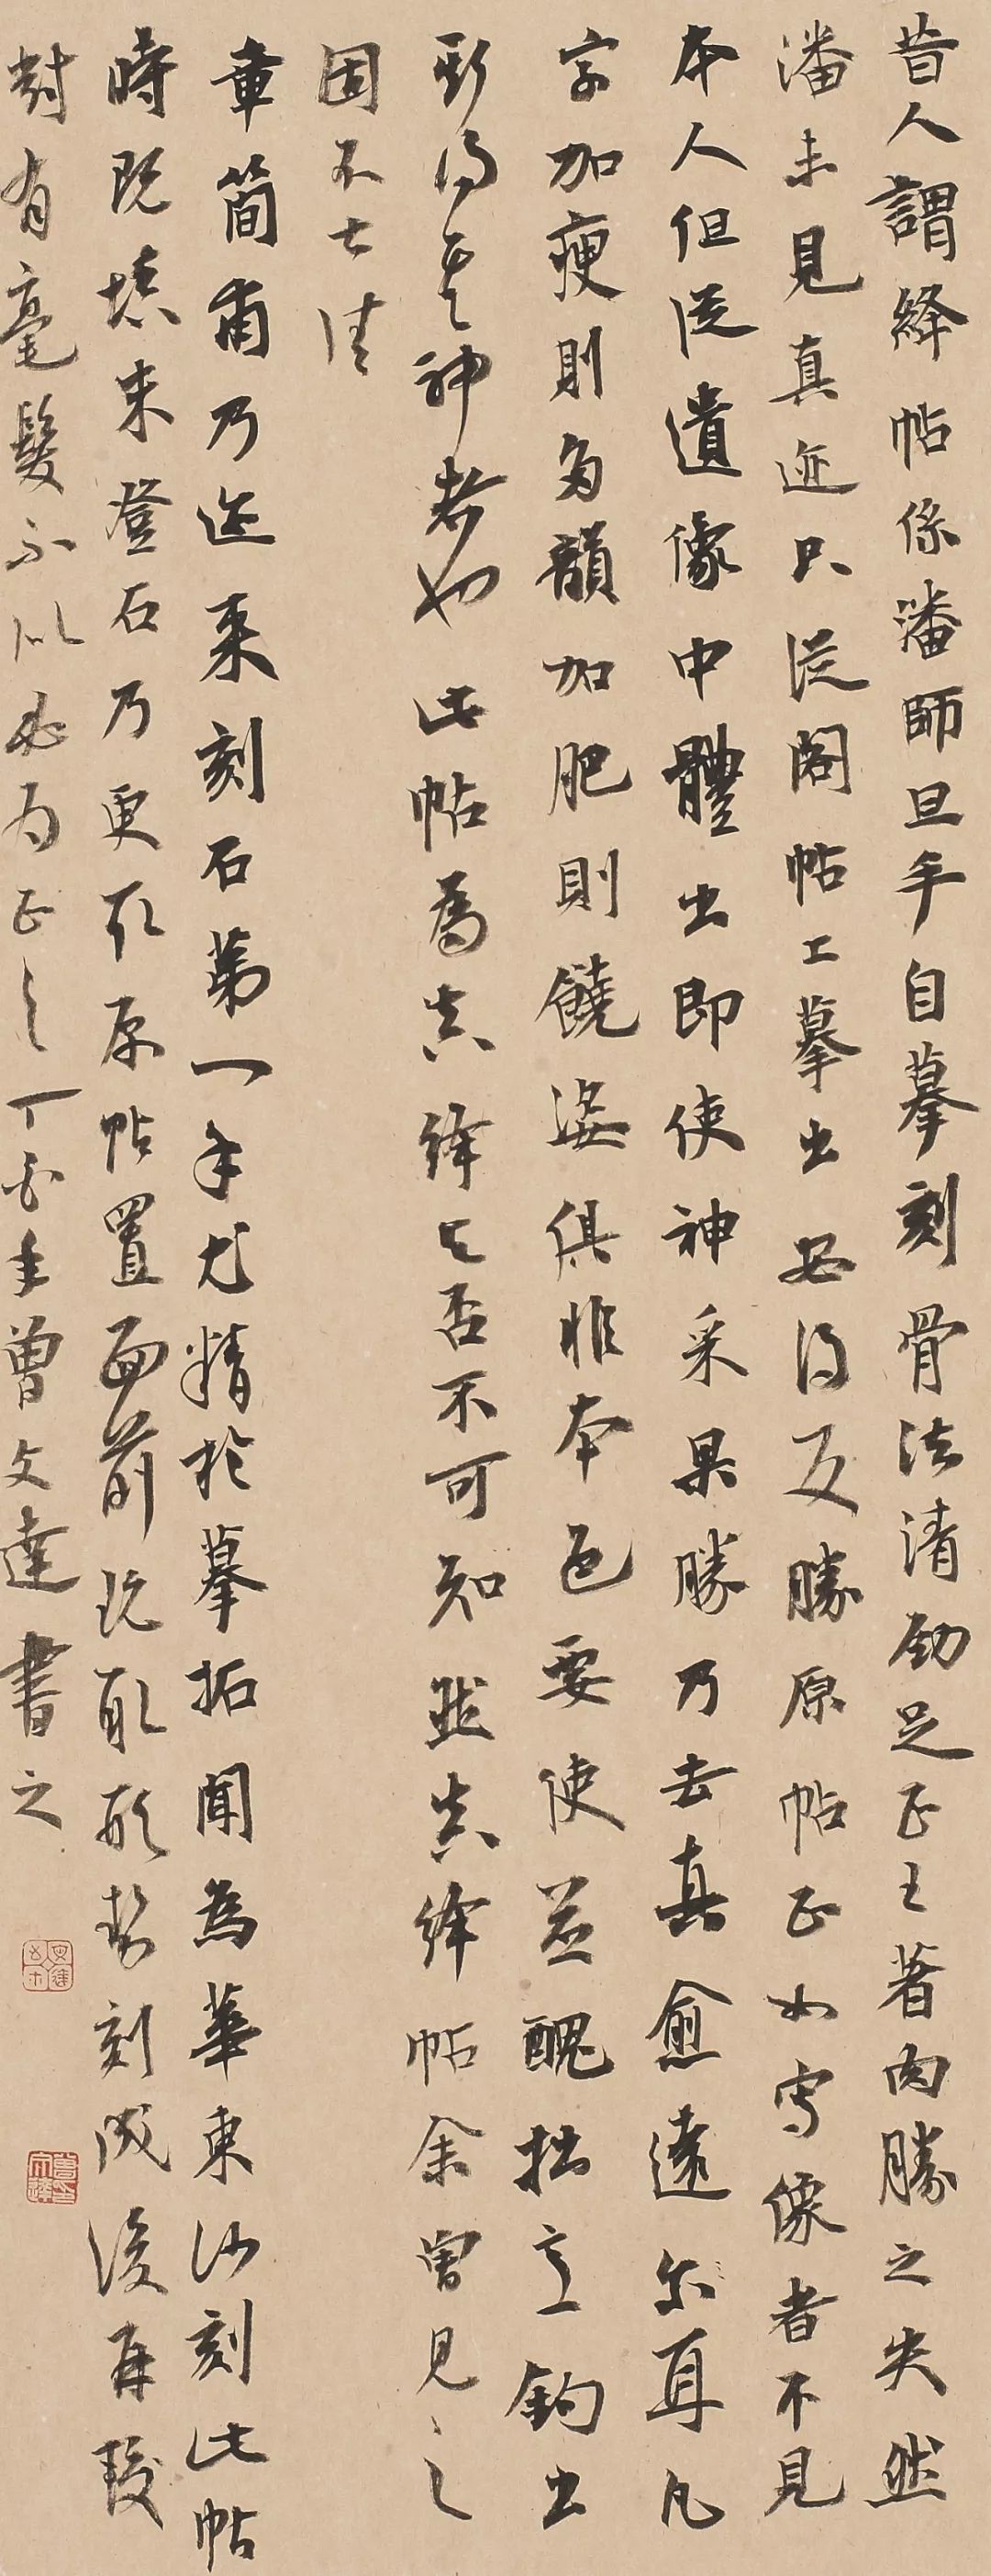 昔人謂絳帖係潘師旦手自摹刻骨法清勁足正王著肉勝之失然
潘未見真迹只從閣帖上摹出安得反勝原帖正如寫像者不見
本人但從遺像中體出即使神采果勝乃去真愈遠尔耳凡
字加瘦則多韻加肥則饒姿俱非本色要使並醜拙亦鉤出
斯得其神者也此帖為真絳與否不可知然真絳帖余曾見之
因不
章簡甫乃近來刻石第一手尤精於摹拓聞為華東沙刻此帖
時既填朱登石乃更取原帖置面前玩取形勢刻成後再
對有毫髮不似必為正之丁酉年曾文達書之